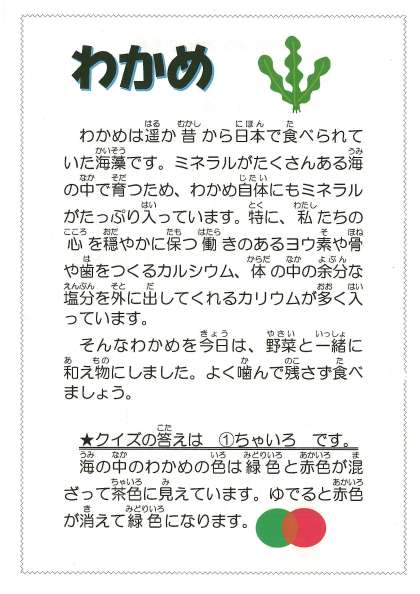 わかめ
わかめは遥か昔から日本で食べられて
いた海藻です。ミネラルがたくさんある海
の中で育つため、わかめ自体にもミネラル
がたっぷり入っています。特に、私たちの
心を穏やかに保つ働きのあるヨウ素や骨
や歯をつくるカルシウム、体の中の余分な
塩分を外に出してくれるカリウムが多く入
っています。
そんなわかめを今日は、野菜と一緒に
和え物にしました。よく噛んで残さず食べ
ましょう。
★クイズの答えは ①ちゃいろ です。
海の中のわかめの色は緑色と赤色が混
ざって茶色に見えています。ゆでると赤色
が消えて緑色になります。